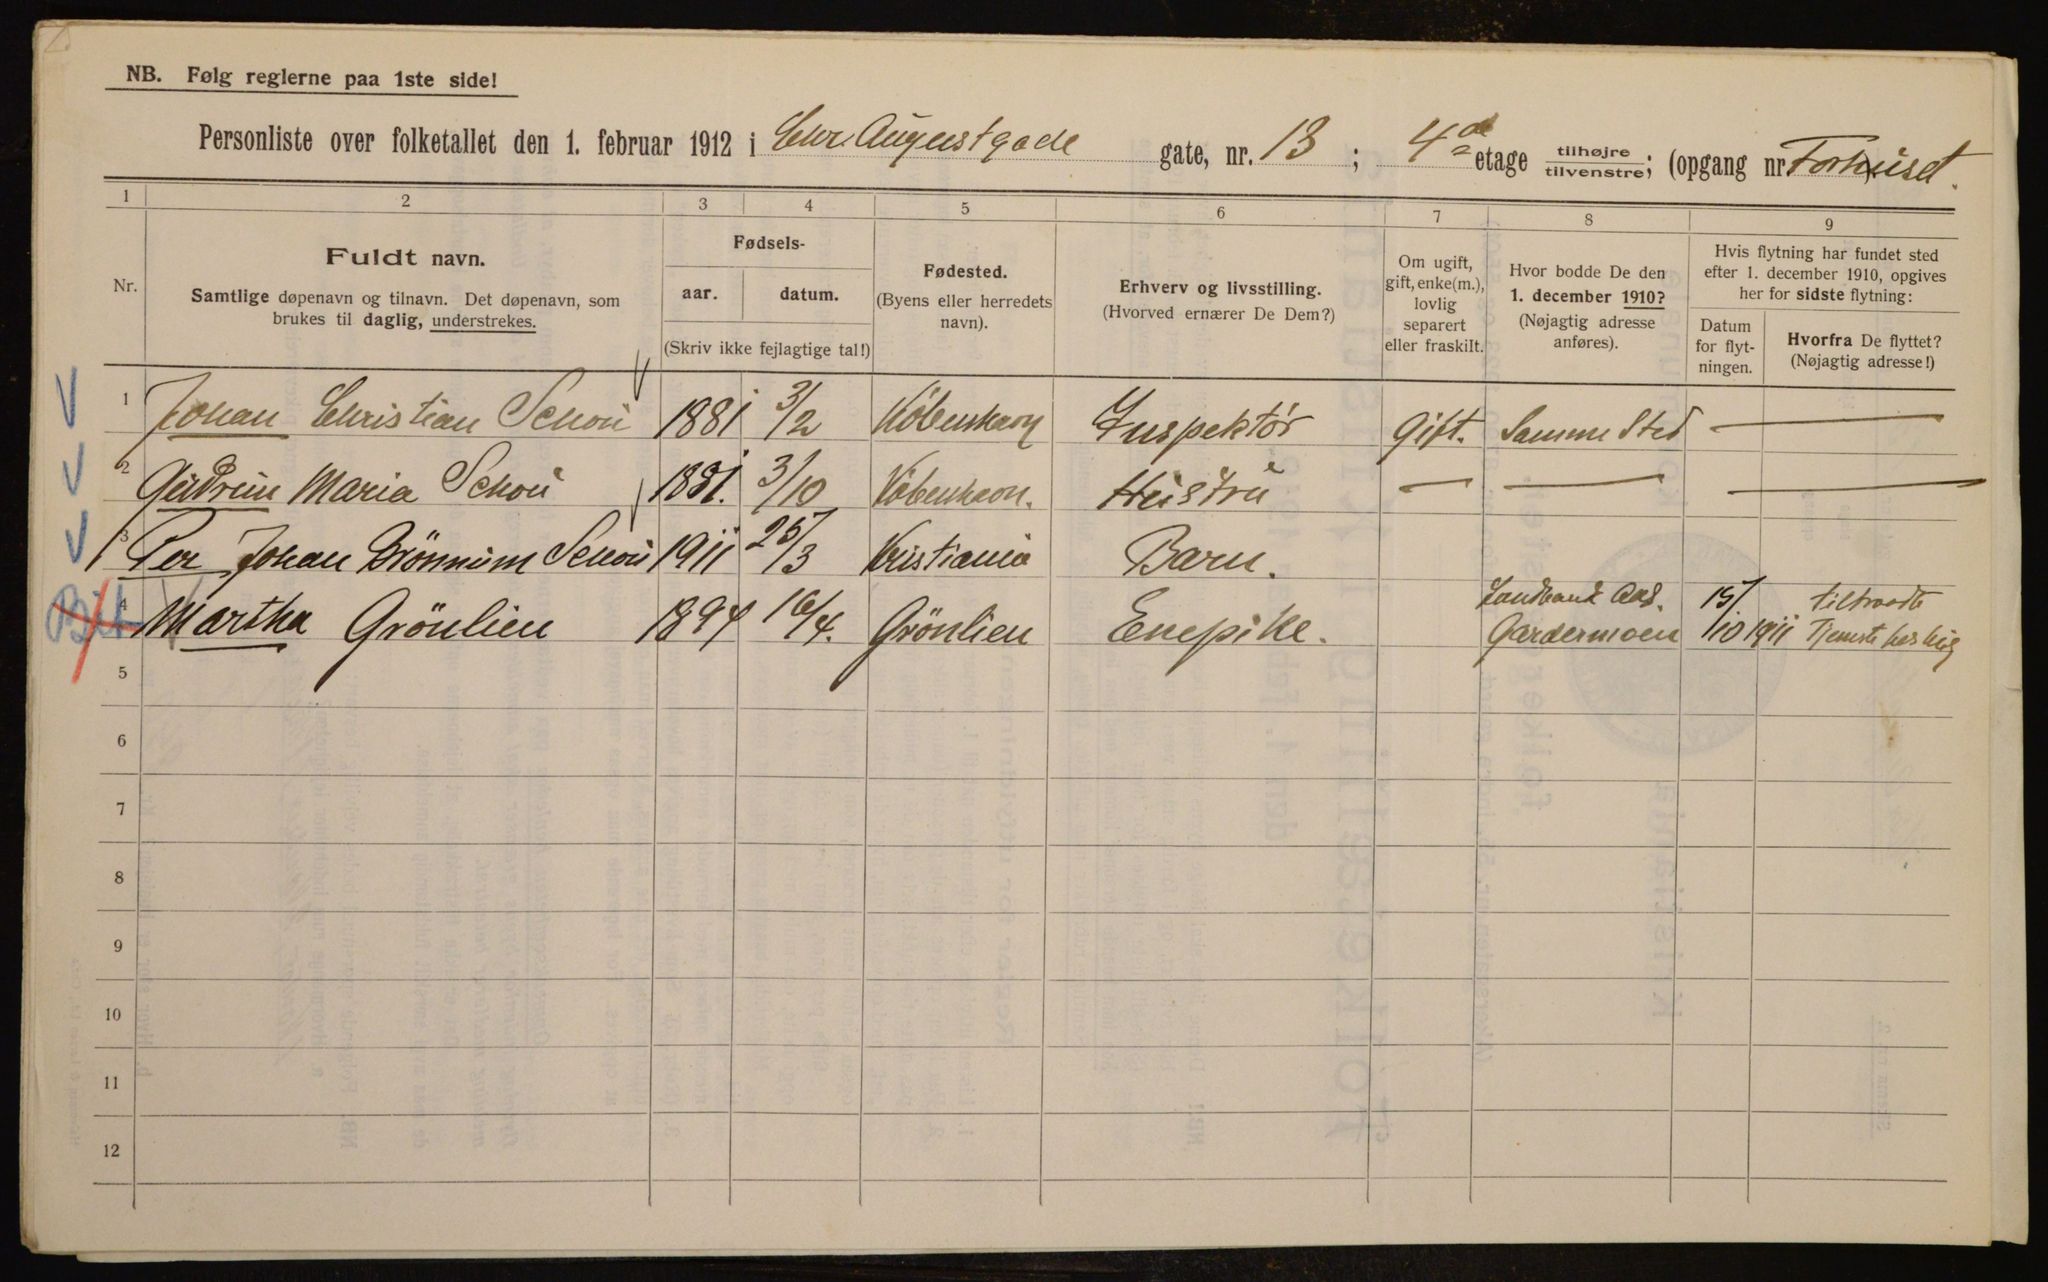 NB. Følg reglerne paa 1ste side!
Personliste over folketallet den 1. februar 1912 i Chr. Augustgade gate, nr. 13 ; 4de etage tilhøjre tilvenstre; (opgang nr Forhuset.
1 2 3 4 5 6 7 8 9
Nr.
Fuldt navn.
Samtlige døpenavn og tilnavn. Det døpenavn, som
brukes til daglig, understrekes.
Fødsels-
aar. datum.
(Skriv ikke fejlagtige tal!)
Fødested.
(Byens eller herredets
navn).
Erhverv og livsstilling.
(Hvorved ernærer De Dem?)
Om ugift,
gift, enke(m.),
lovlig
separert
eller fraskilt.
Hvor bodde De den
1. december 1910?
(Nøjagtig adresse
anføres).
Hvis flytning har fundet sted
efter 1. december 1910, opgives
her for sidste flytning:
Datum
for flyt-
ningen.
Hvorfra De flyttet?
(Nøjagtig adresse!)
1 Johan Christian Schou 1881 3/2 København Inspektör Gift. Samme Sted —
2 Gudrun Maria Schou 1881. 3/10 København. Hustru — — —
3 Per Johan Grönnum Schou 1911 25/3 Kristiania Barn.
4 Martha Grönlien 1894 16/4. Grönlien Enepike. Gardermoen 15/10 1911 tiltraadte
Tjeneste hos mig
5
6
7
8
9
10
11
12